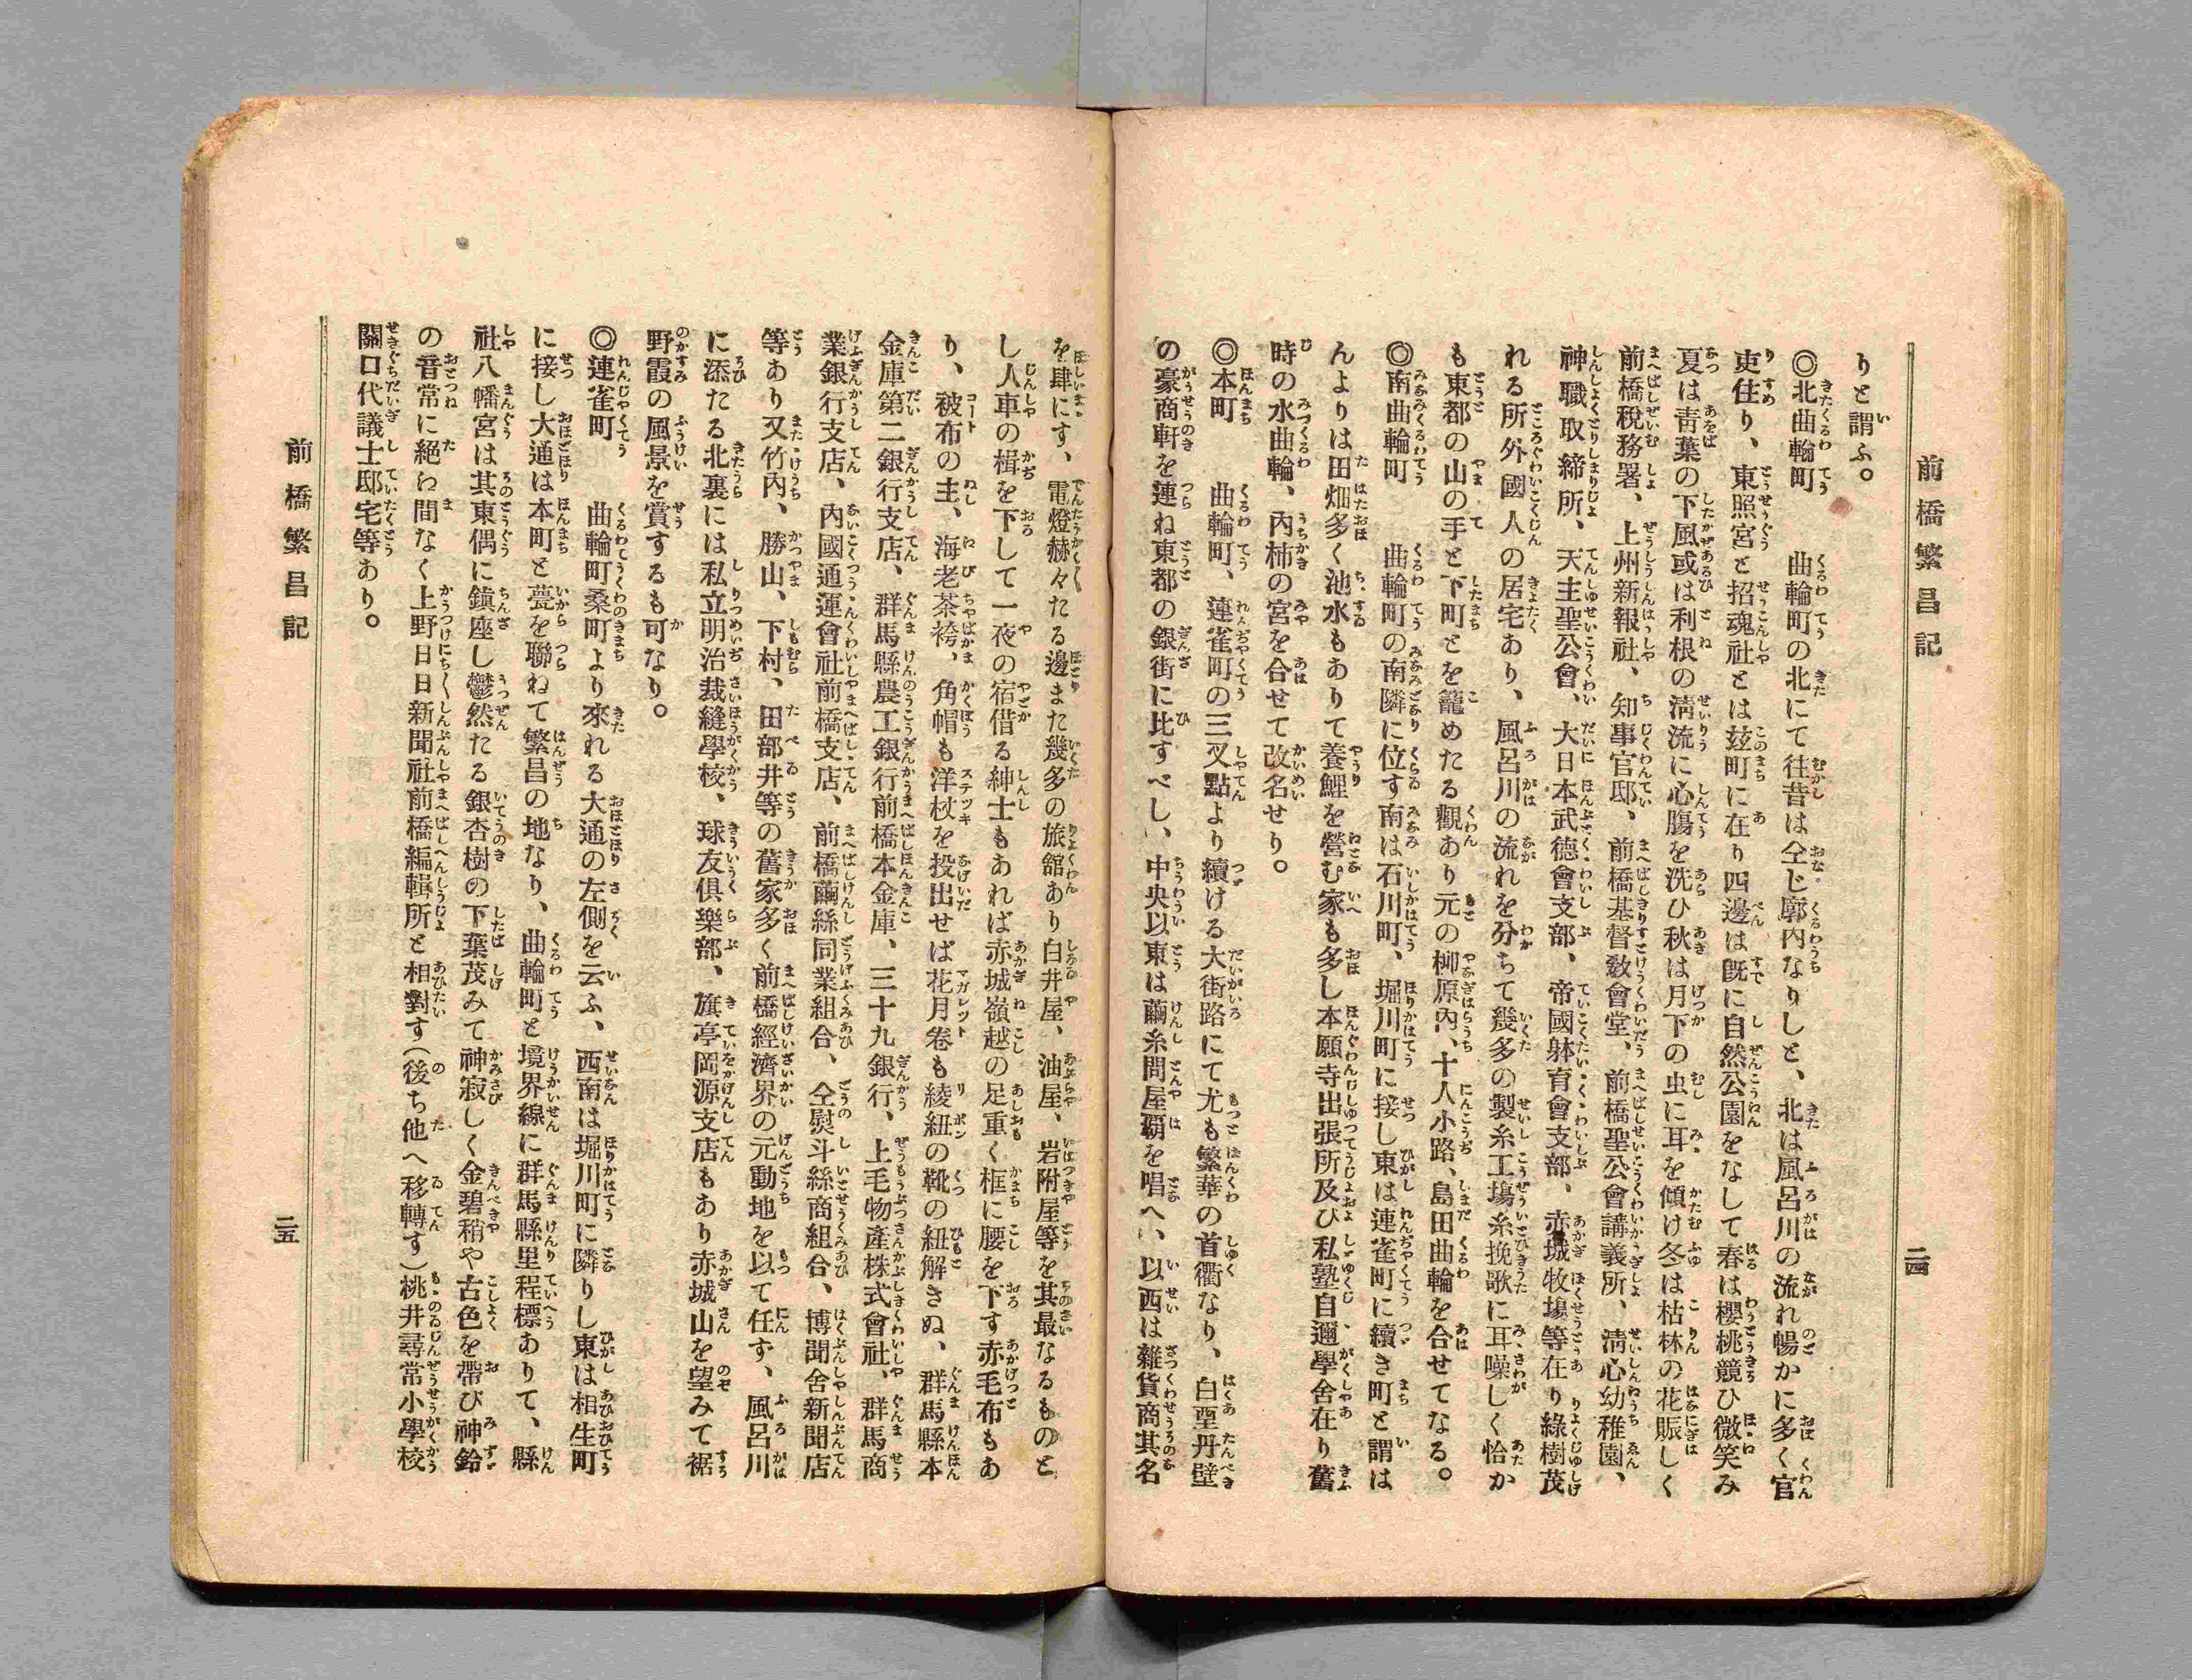 前橋繁昌記
二四
りと謂ふ。
◎北曲輪町　曲輪町の北にて往昔は仝じ廓内なりしと、北は風呂川の流れ暢かに多く官
吏住り、東照宮と招魂社とは玆町に在り四邊は既に自然公園をなして春は櫻桃競ひ微笑み
夏は靑葉の下風或は利根の淸流に心膓を洗ひ秋は月下の虫に耳を傾け冬は枯林の花賑しく
前橋稅務署、上州新報社、知事官邸、前橋基督敎會堂、前橋聖公會講義所、淸心幼稚園、
神職取締所、天主聖公會、大日本武德會支部、帝國躰育會支部、赤城牧塲等在り綠樹茂
れる所外國人の居宅あり、風呂川の流れを分ちて幾多の製糸工塲糸挽歌に耳噪しく恰か
も東都の山の手と下町とを籠めたる觀あり元の柳原內、十人小路、島田曲輪を合せてなる。
◎南曲輪町　曲輪町の南隣に位す南は石川町、堀川町に接し東は連雀町に續き町と謂は
んよりは田畑多く池水もありて養鯉を營む家も多し本願寺出張所及び私塾自邇學舍在り舊
時の水曲輪、內柿の宮を合せて改名せり。
◎本町　曲輪町、連雀町の三叉點より續ける大街路にて尤も繁華の首衢なり、白堊丹壁
の豪商軒を連ね東都の銀街に比すべし、中央以東は繭糸問屋覇を唱へ、以西は雜貨商其名
を肆にす、電燈赫々たる邊また幾多の旅舘あり白井屋、油屋、岩附屋等を其最なるものと
し人車の楫を下して一夜の宿借る紳士もあれば赤城嶺越の足重く框に腰を下す赤毛布もあ
り、被布の主、海老茶袴、角帽も洋杖を投出せば花月卷も綾紐の靴の紐解きぬ、群馬縣本
金庫第二銀行支店、群馬縣農工銀行前橋本金庫、三十九銀行、上毛物產株式會社、群馬商
業銀行支店、內國通運會社前橋支店、前橋繭絲同業組合、仝熨斗絲商組合、博聞舍新聞店
等あり又竹內、勝山、下村、田部井等の舊家多く前橋經濟界の元動地を以て任ず、風呂川
に添たる北裏には私立明治裁縫學校、球友俱樂部、旗亭岡源支店もあり赤城山を望みて裾
野霞の風景を賞するも可なり。
◎連雀町　曲輪町桑町より來れる大通の左側を云ふ、西南は堀川町に隣りし東は相生町
に接し大通は本町と甍を聯ねて繁昌の地なり、曲輪町と境界線に群馬縣里程標ありて、縣
社八幡宮は其東偶に鎭座し鬱然たる銀杏樹の下葉茂みて神寂しく金碧稍や古色を帶び神鈴
の音常に絕ゆ間なく上野日日新聞社前橋編輯所と相對す（後ち他へ移轉す）桃井尋常小學校
關口代議士邸宅等あり。
前橋繁昌記
二五